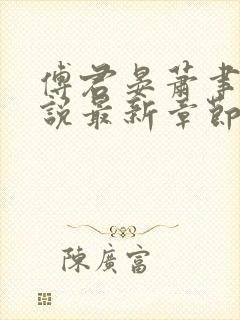 傅君晏蕭事
說最新章節
陳廣富